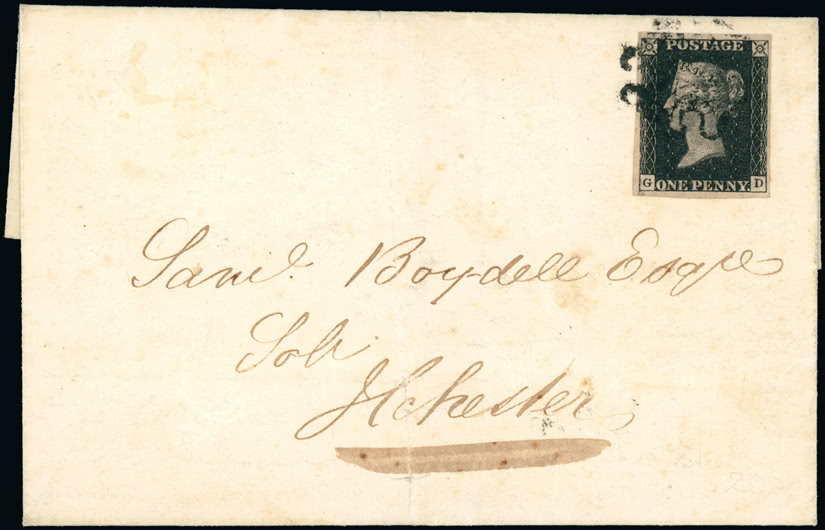 POSTAGE
G ONE PENNY. D
Saml. Boydell Esqre
Solr
Chester